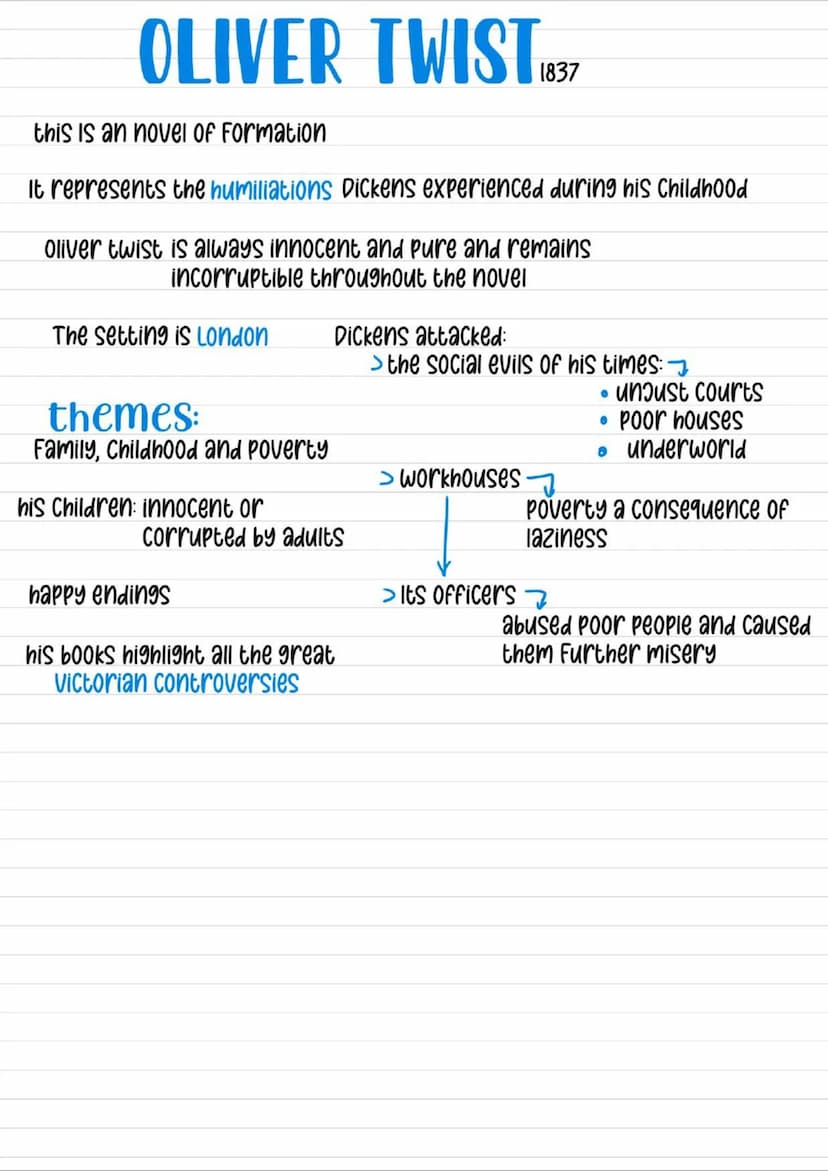 OLIVER TWIST 1837
this is an novel of Formation
It represents the humiliations Dickens experienced during his Childhood
Oliver twist is always innocent and pure and remains
incorruptible throughout the novel
The setting is London
Dickens attacked:
> the social evils of his times:
• unjust courts
• poor houses
• underworld
themes:
Family, Childhood and poverty
> workhouses
his Children: innocent or
corrupted by adults
poverty a consequence of
laziness
happy endings
> Its officers
abused poor people and caused
them further misery
his books highlight all the great
Victorian controversies